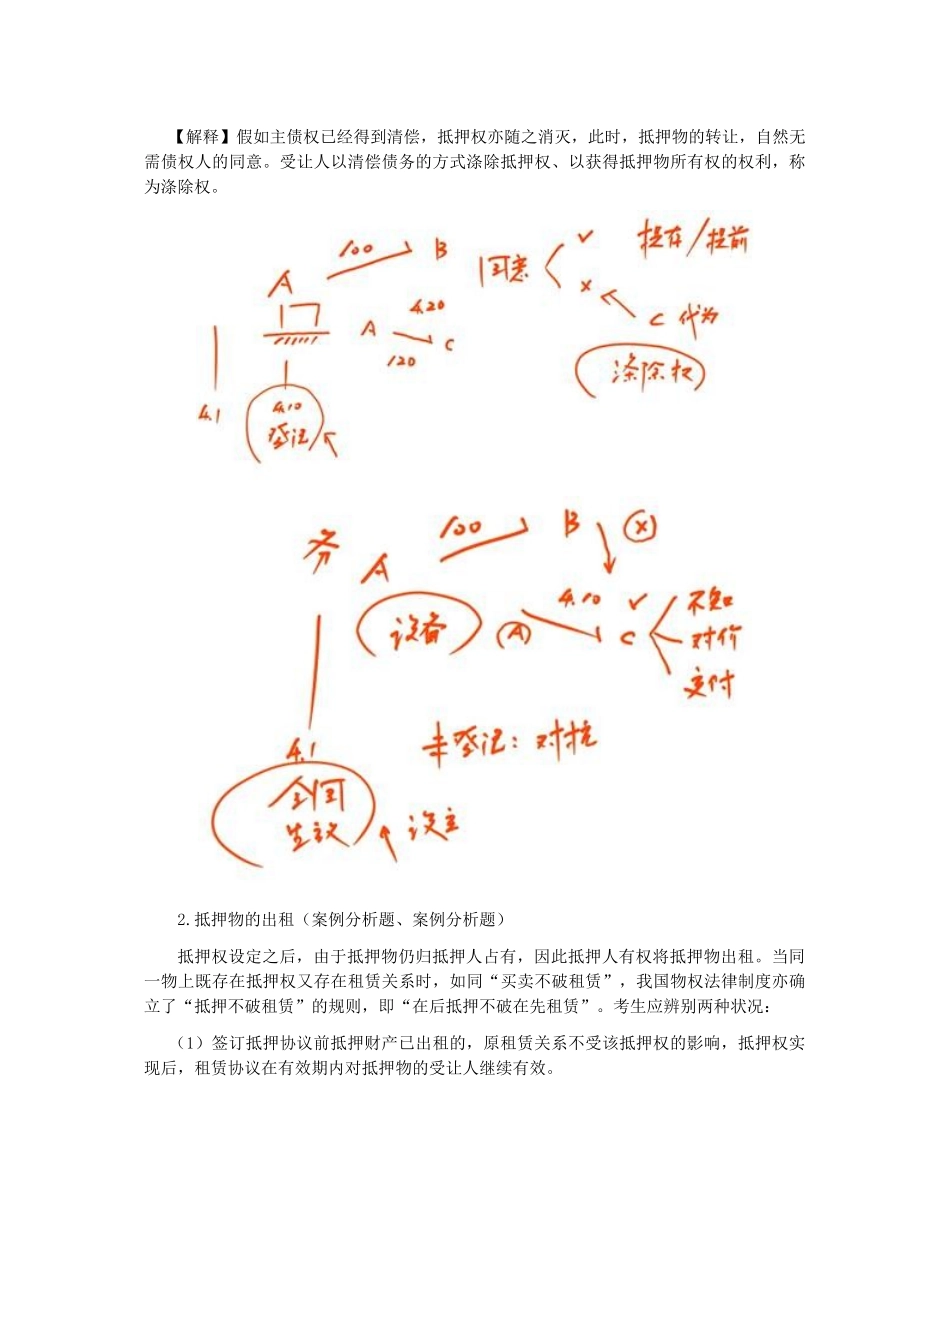 【解释】假如主债权已经得到清偿，抵押权亦随之消灭，此时，抵押物的转让，自然无
需债权人的同意。受让人以清偿债务的方式涤除抵押权、以获得抵押物所有权的权利，称
为涤除权。
100 B
A
同意 √ 提存/提前
×
4.20
A C
120
C 代为
涤除权
4.1
4.10
登记
100 B ×
A
设备
4.10 √
A C
不知
对价
交付
4.1
未登记：对抗
合同
生效
设立
2.抵押物的出租（案例分析题、案例分析题）
抵押权设定之后，由于抵押物仍归抵押人占有，因此抵押人有权将抵押物出租。当同
一物上既存在抵押权又存在租赁关系时，如同“买卖不破租赁”，我国物权法律制度亦确
立了“抵押不破租赁”的规则，即“在后抵押不破在先租赁”。考生应辨别两种状况：
（1）签订抵押协议前抵押财产已出租的，原租赁关系不受该抵押权的影响，抵押权实
现后，租赁协议在有效期内对抵押物的受让人继续有效。